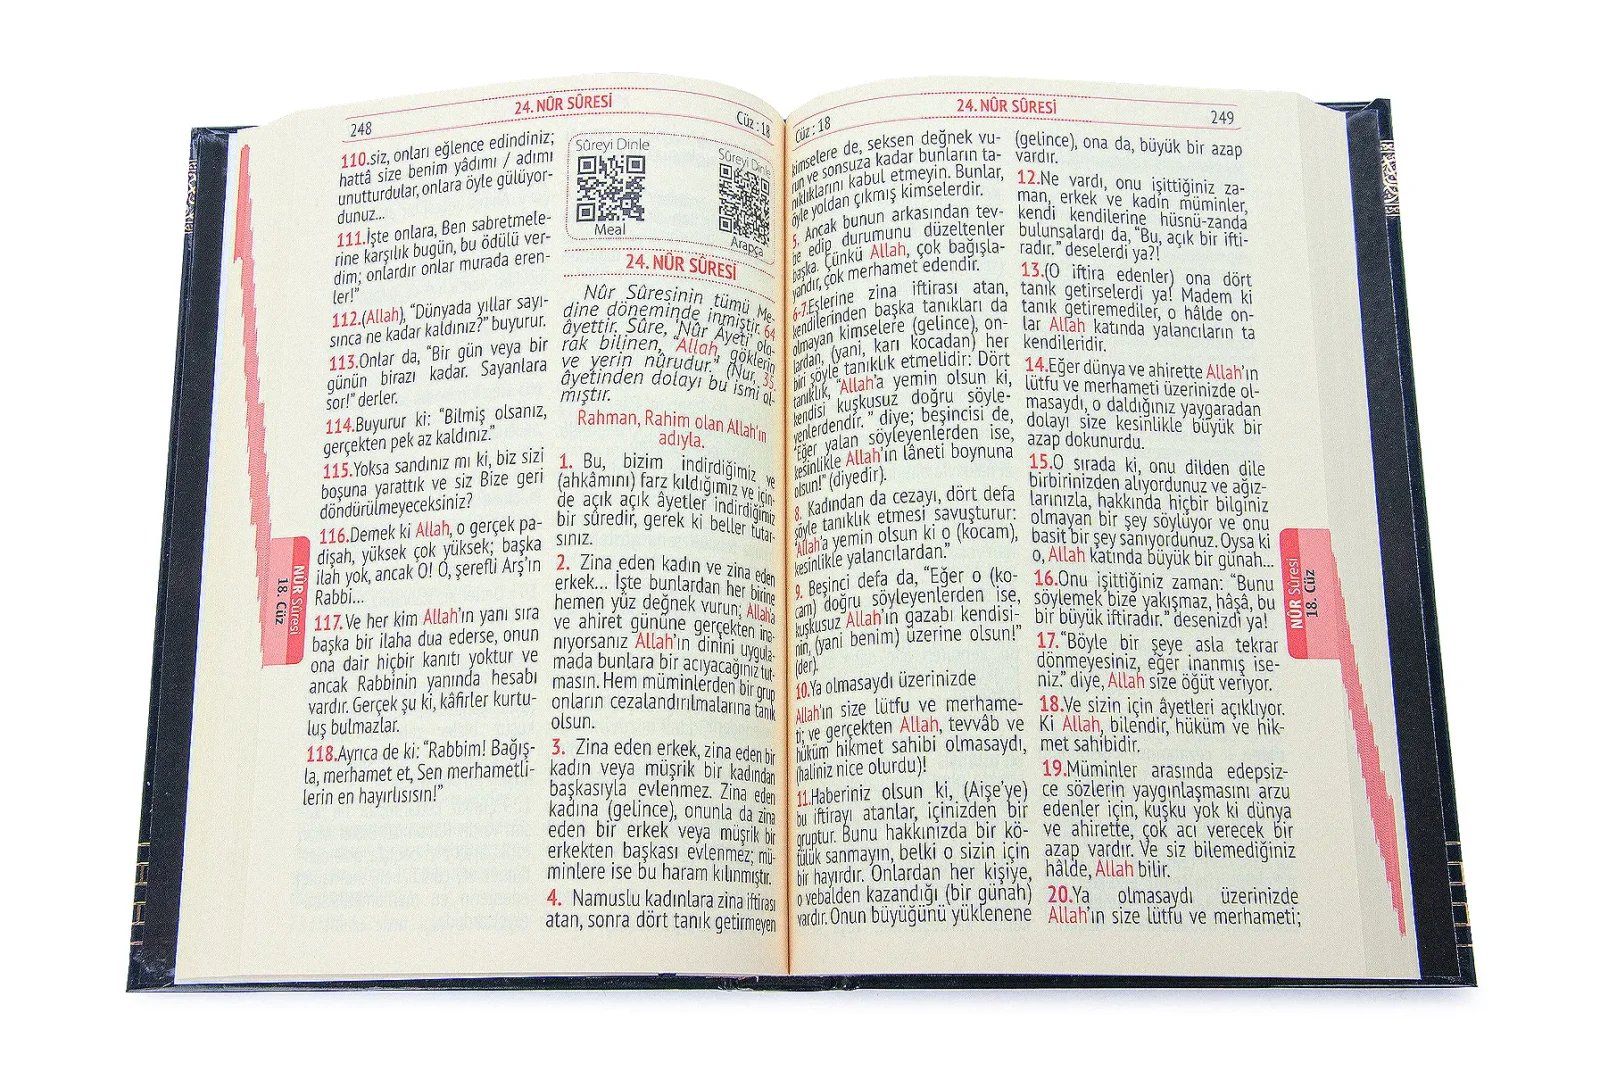 24. NÛR SÛRESİ
248
Cüz : 18
110.siz, onları eğlence edindiniz;
hattâ size benim yâdımı / adımı
unutturdular, onlara öyle gülüyor-
dunuz...
111.İşte onlara, Ben sabretmele-
rine karşılık bugün, bu ödülü ver-
dim; onlardır onlar murada eren-
ler!”
112.(Allah), “Dünyada yıllar sayı-
sınca ne kadar kaldınız?” buyurur.
113.Onlar da, “Bir gün veya bir
günün birazı kadar. Sayanlara
sor!” derler.
114.Buyurur ki: “Bilmiş olsanız,
gerçekten pek az kaldınız.”
115.Yoksa sandınız mı ki, biz sizi
boşuna yarattık ve siz Bize geri
döndürülmeyeceksiniz?
116.Demek ki Allah, o gerçek pa-
dişah, yüksek çok yüksek; başka
ilah yok, ancak O! O, şerefli Arş’ın
Rabbi...
117.Ve her kim Allah’ın yanı sıra
başka bir ilaha dua ederse, onun
ona dair hiçbir kanıtı yoktur ve
ancak Rabbinin yanında hesabı
vardır. Gerçek şu ki, kâfirler kurtu-
luş bulmazlar.
118.Ayrıca de ki: “Rabbim! Bağış-
la, merhamet et, Sen merhametli-
lerin en hayırlısısın!”
NÛR Sûresi
18. Cüz
Sûreyi Dinle
Meal
Sûreyi Dinle
Arapça
24. NÛR SÛRESİ
Nûr Sûresinin tümü Me-
dine döneminde inmiştir. 64
âyettir. Sûre, “Nûr Âyeti” ola-
rak bilinen, “Allah, göklerin
ve yerin nûrudur.” (Nur, 35.
âyetinden dolayı bu ismi al-
mıştır.
Rahman, Rahim olan Allah’ın
adıyla.
1. Bu, bizim indirdiğimiz ve
(ahkâmını) farz kıldığımız ve için-
de açık açık âyetler indirdiğimiz
bir sûredir, gerek ki beller tutar-
sınız.
2. Zina eden kadın ve zina eden
erkek... İşte bunlardan her birine
hemen yüz değnek vurun; Allah’a
ve ahiret gününe gerçekten ina-
nıyorsanız Allah’ın dinini uygula-
mada bunlara bir acıyacağınız tut-
masın. Hem müminlerden bir grup
onların cezalandırılmalarına tanık
olsun.
3. Zina eden erkek, zina eden bir
kadın veya müşrik bir kadından
başkasıyla evlenmez. Zina eden
kadına (gelince), onunla da zina
eden bir erkek veya müşrik bir
erkekten başkası evlenmez; mü-
minlere ise bu haram kılınmıştır.
4. Namuslu kadınlara zina iftirası
atan, sonra dört tanık getirmeyen
24. NÛR SÛRESİ
Cüz : 18
249
kimselere de, seksen değnek vu-
run ve sonsuza kadar bunların ta-
nıklıklarını kabul etmeyin. Bunlar,
öyle yoldan çıkmış kimselerdir.
5. Ancak bunun arkasından tev-
be edip durumunu düzeltenler
başka. Çünkü Allah, çok bağışla-
yandır, çok merhamet edendir.
6-7.Eşlerine zina iftirası atan,
kendilerinden başka tanıkları da
olmayan kimselere (gelince), on-
lardan, (yani, karı kocadan) her
biri şöyle tanıklık etmelidir: Dört
tanıklık, “Allah’a yemin olsun ki,
kendisi kuşkusuz doğru söyle-
yenlerdendir.” diye; beşincisi de,
“Eğer yalan söyleyenlerden ise,
kesinlikle Allah’ın lâneti boynuna
olsun!” (diyedir).
8. Kadından da cezayı, dört defa
şöyle tanıklık etmesi savuşturur:
“Allah’a yemin olsun ki o (kocam),
kesinlikle yalancılardan.”
9. Beşinci defa da, “Eğer o (ko-
cam) doğru söyleyenlerden ise,
kuşkusuz Allah’ın gazabı kendisi-
nin, (yani benim) üzerine olsun!”
(der).
10.Ya olmasaydı üzerinizde
Allah’ın size lütfu ve merhame-
ti; ve gerçekten Allah, tevvâb ve
hüküm hikmet sahibi olmasaydı,
(haliniz nice olurdu)!
11.Haberiniz olsun ki, (Aişe’ye)
bu iftirayı atanlar, içinizden bir
gruptur. Bunu hakkınızda bir kö-
tülük sanmayın, belki o sizin için
bir hayırdır. Onlardan her kişiye,
o vebalden kazandığı (bir günah)
vardır. Onun büyüğünü yüklenene
(gelince), ona da, büyük bir azap
vardır.
12.Ne vardı, onu işittiğiniz za-
man, erkek ve kadın müminler,
kendi kendilerine hüsnü-zanda
bulunsalardı da, “Bu, açık bir ifti-
radır.” deselerdi ya?!
13.(O iftira edenler) ona dört
tanık getirselerdi ya! Madem ki
tanık getiremediler, o hâlde on-
lar Allah katında yalancıların ta
kendileridir.
14.Eğer dünya ve ahirette Allah’ın
lütfu ve merhameti üzerinizde ol-
masaydı, o daldığınız yaygaradan
dolayı size kesinlikle büyük bir
azap dokunurdu.
15.O sırada ki, onu dilden dile
birbirinizden alıyordunuz ve ağız-
larınızla, hakkında hiçbir bilginiz
olmayan bir şey söylüyor ve onu
basit bir şey sanıyordunuz. Oysa ki
o, Allah katında büyük bir günah...
16.Onu işittiğiniz zaman: “Bunu
söylemek bize yakışmaz, hâşâ, bu
bir büyük iftiradır.” desenizdi ya!
17.“Böyle bir şeye asla tekrar
dönmeyesiniz, eğer inanmış ise-
niz.” diye, Allah size öğüt veriyor.
18.Ve sizin için âyetleri açıklıyor.
Ki Allah, bilendir, hüküm ve hik-
met sahibidir.
19.Müminler arasında edepsiz-
ce sözlerin yaygınlaşmasını arzu
edenler için, kuşku yok ki dünya
ve ahirette, çok acı verecek bir
azap vardır. Ve siz bilemediğiniz
hâlde, Allah bilir.
20.Ya olmasaydı üzerinizde
Allah’ın size lütfu ve merhameti;
NÛR Sûresi
18. Cüz